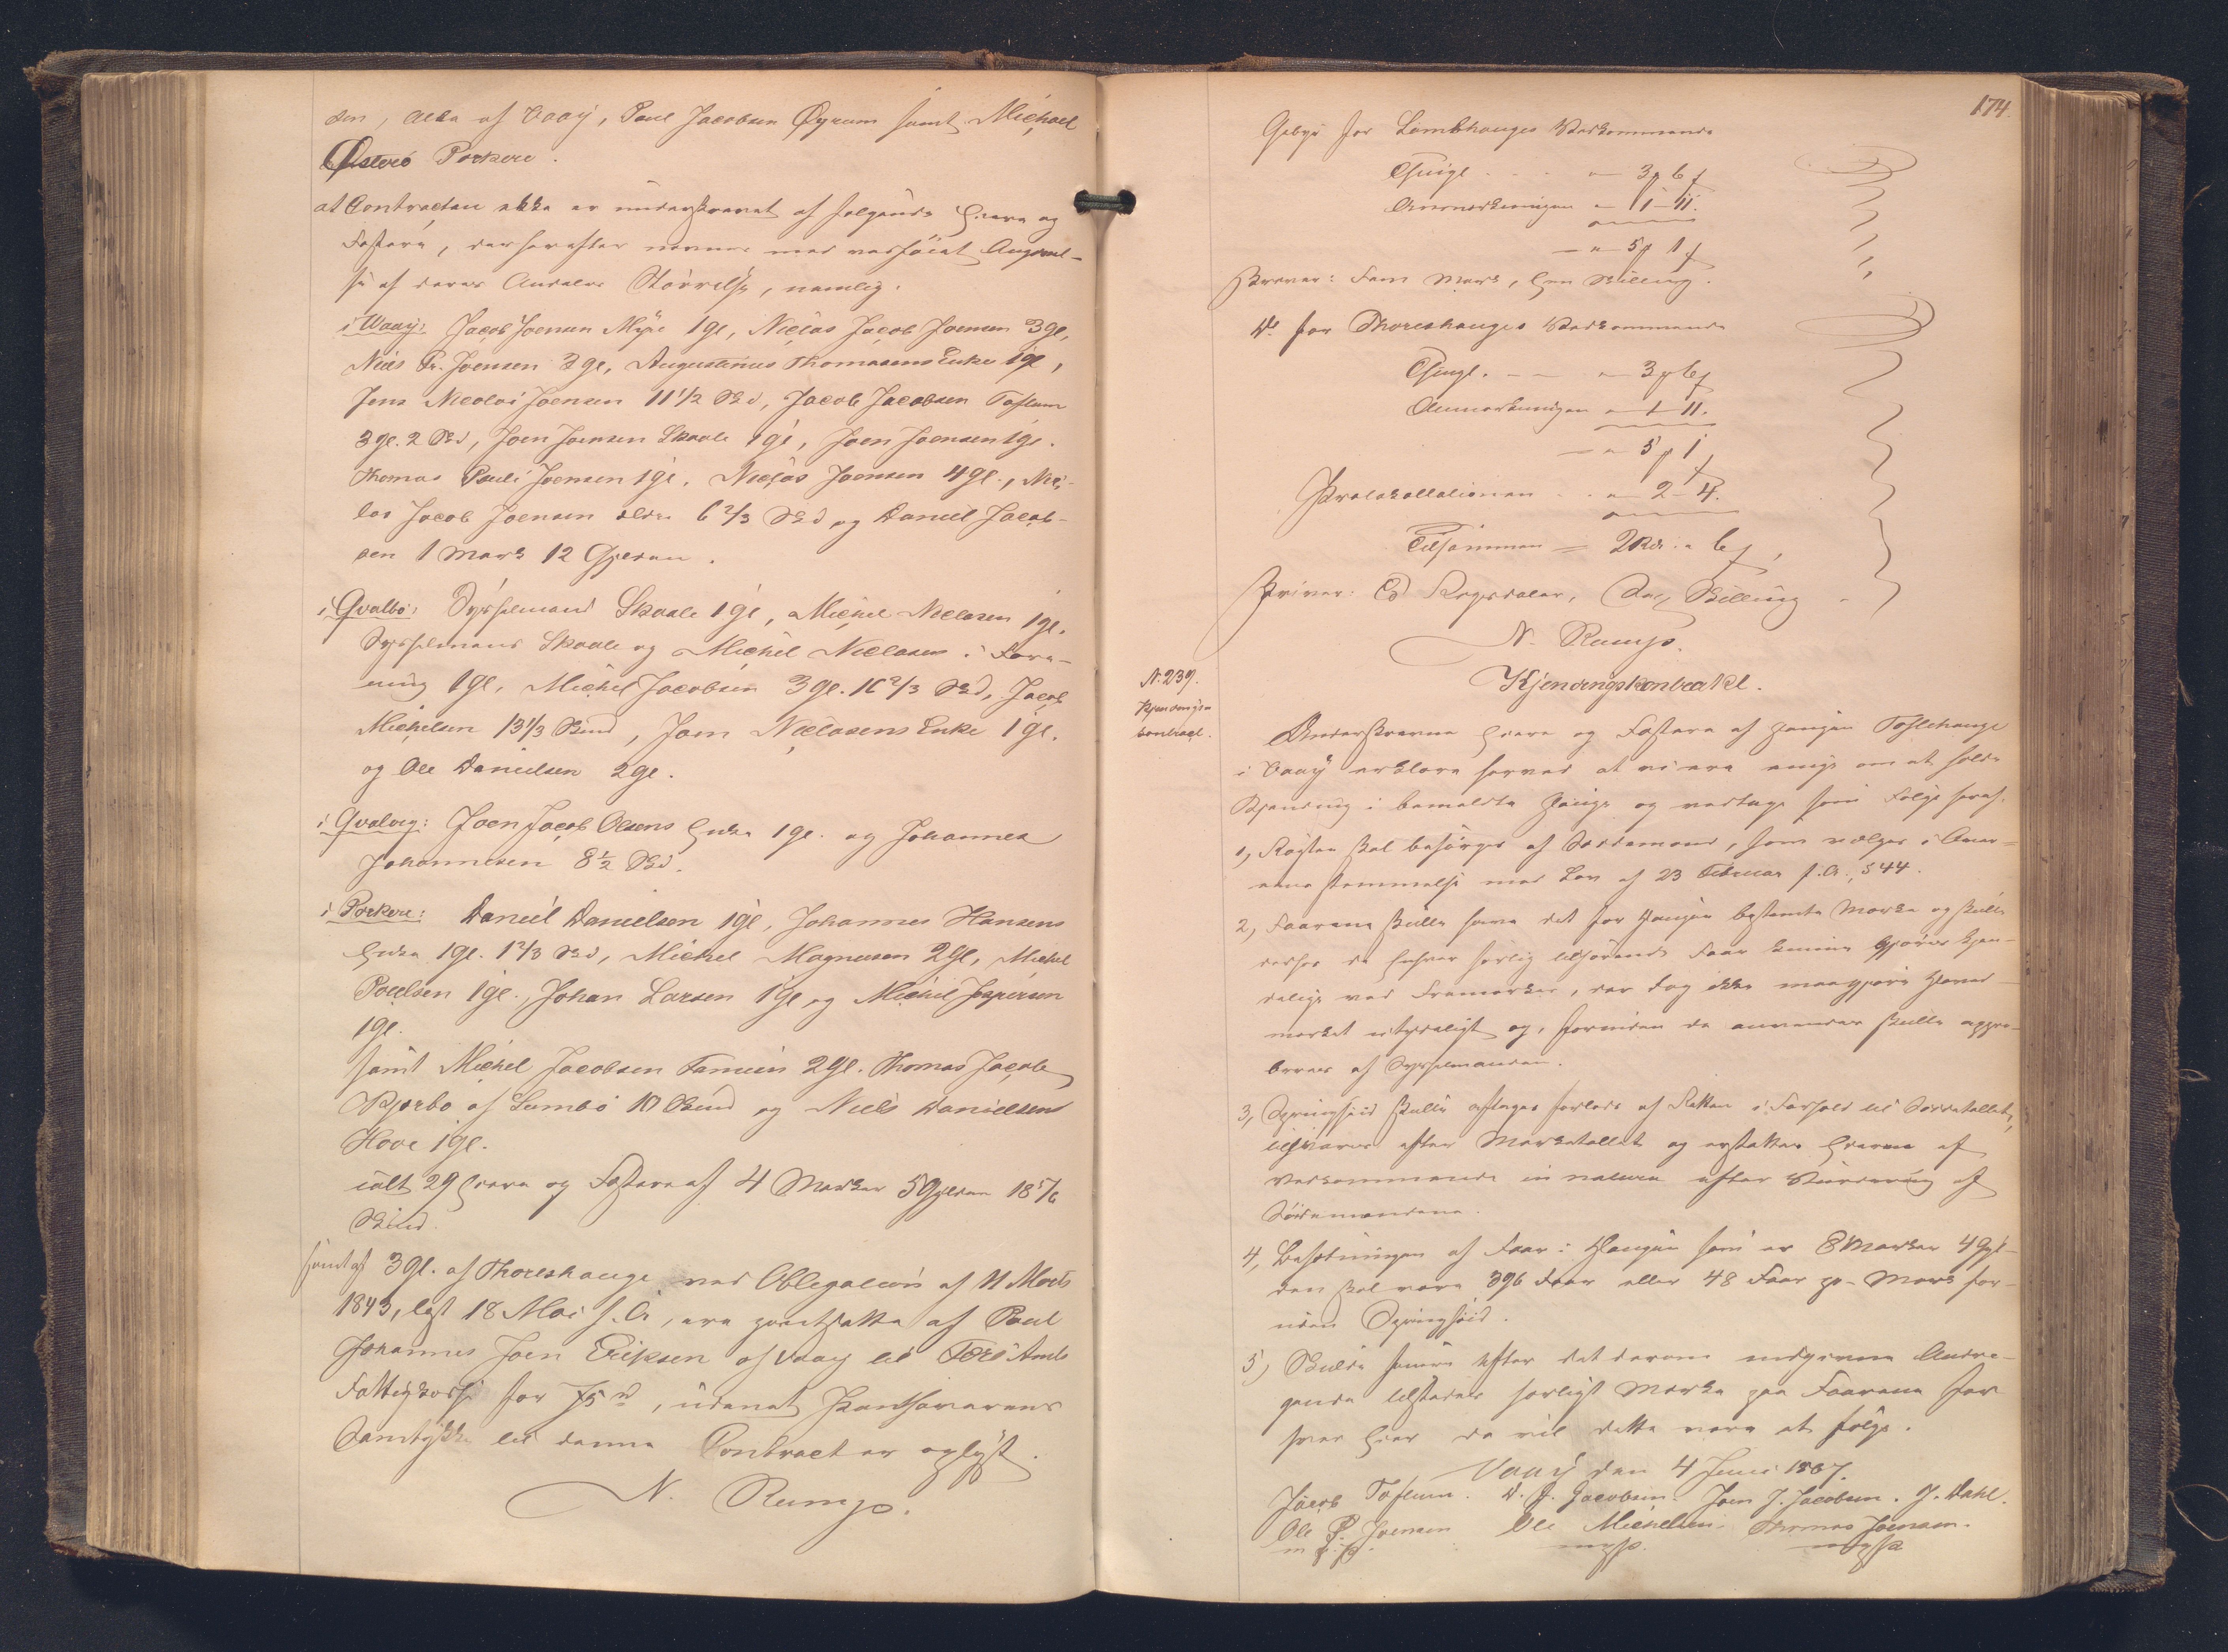 sen, alle af Vaag, Poul Jacobsen Øyrum samt Michael
Østerö Porkere.
at Contracten ikke er underskrevet af følgende Eiere og
Fæstere, der herefter nævnes med vedföiet Angivel-
se af deres Andeles Störrelse, nemlig.
i Waag: Jacob Joensen Myre 1 gl, Niclas Jacob Joensen 3 gl,
Niels Pr. Joensen 3 gl, Augustinus Thomasens Enke 1 gl,
Jens Nicolai Joensen 11 1/2 Skd, Jacob Jacobsen Toftum
3 gl. 2 Skd, Joen Joensen Skaale 1 gl, Joen Joensen 1 gl.
Thomas Pauli Joensen 1 gl. Niclas Joensen 4 gl., Nic-
las Jacob Joensen ældre 6 2/3 Skd og Daniel Jacob-
sen 1 Mark 12 Gylden.
i Qvalbö: Sysselmand Skaale 1 gl, Michel Niclasen 1 gl.
Sysselmand Skaale og Michel Niclasen i Fore-
ning 1 gl, Michel Jacobsen 3 gl. 16 2/3 Skd, Jacob
Michelsen 13 1/3 Skind, Joen Niclasens Enke 1 gl.
og Ole Danielsen 2 gl.
i Qvalvig: Joen Jacob Olsens Enke 1 gl. og Johannes
Johannesen 8 1/2 Skd.
i Porkere: Daniel Danielsen 1 gl, Johannes Hansens
Enke 1 gl. 1 2/3 Skd, Michel Magnusen 2 gl, Michel
Poulsen 1 gl., Johan Larsen 1 gl og Michel Jespersen
1 gl.
samt Michel Jacobsen Famien 2 gl. Thomas Jacob
Kjerbo af Sumbö 10 Skind og Niels Danielsen
Hove 1 gl.
ialt 29 Eiere og Fæstere af 4 Marker 5 Gylden 18 5/6
Skind.
samt af 3 gl. af Thoreshauge ved Obligation af 11 Marts
1843, læst 18 Mai s. A, ere pantsatte af Poul
Johannes Joen Eriksen af Vaag til Færö Amts
Fattigkasse for 75 rd, uden at Panthaverens
Samtykke til denne Contract er oplyst.
N. Rump.
174.
Gebyr for Lambhauges Vedkommende
Thingl. - 3 # 6 s
Anmærkningen - 1 - 11.
- 5 # 1 s
skriver: Fem Mark, Een Skilling.
Do for Thoreshauges Vedkommende
Thingl. - 3 # 6 s
Anmærkningen - 1 - 11.
- 5 # 1
Protokollationen - 2 - 4.
Tilsammen = 2 Rd. - 6 s,
skriver: To Rigsdaler, Sex Skilling.
N. Rump.
N. 239.
Kjendings-
contract.
Kjendingskontrakt.
Underskrevne Eiere og Fæstere af Haugen Toftehauge
i Vaag erklære herved at vi ere enige om at holde
Kjending i bemeldte Hauge og vedtage som Følge heraf.
1, Røgten skal besörges af Sordemænd, som vælges i Over-
eensstemmelse med Lov af 23 Februar f. A., § 44.
2, Faarene skulle have det for Haugen bestemte Mærke og skulle
derhos de Enhver særlig tilhørende Faar kunne gjøres kjen-
delige ved Fremærker, der dog ikke maa gjøre Hoved-
mærket utydeligt og, forinden de anvendes skulle appro-
beres af Sysselmanden.
3, Springhuid skulle aftages forlods af Flokken i Forhold til Sordetallet,
tilsvares efter Marketallet og erstattes Eierne af
Vedkommende in natura efter Vurdering af
Sordemændene.
4, Besætningen af Faar i Haugen som er 8 Marker 4 Gyl-
den skal være 396 Faar eller 48 Faar pr. Mark for-
uden Springhuid.
5) Skulde senere efter det derom indgivne Andra-
gende tilstedes særligt Mærke paa Faarene for
hver Eier da vil dette være at følge.
Vaag den 4 Juni 1867.
Jacob Toftum. D. J. Jacobsen. Joen J. Jacobsen. J. Dahl.
Ole P. Joensen Ole Michelsen Thomas Joensen.
m. f. P. m f P. m f P